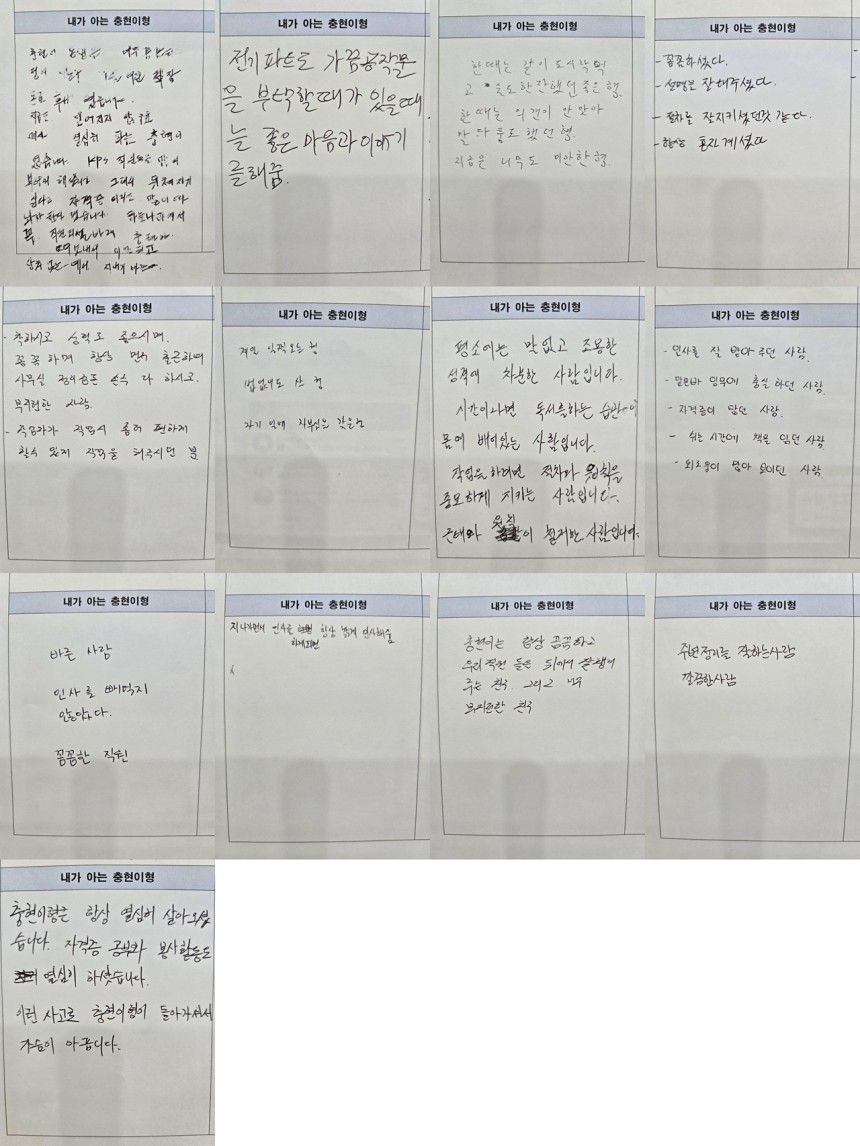 내가 아는 충현이형
열심히
않구요
열심히
없습니다. KPS 직원으로
자격증
내가 아는 충현이형
전기파트로 가끔공작물
을 부탁할때가 있을때
늘 좋은 마음과 이야기
를해줌.
내가 아는 충현이형
한때는 같이 도시락 먹
고 술도한잔했던 좋은 형.
한때는 의견이 안 맞아
말다툼도 했던 형.
지금은 너무도 미안한 형.
내가 아는 충현이형
- 꼼꼼하셨다.
- 설명을 잘해주셨다.
- 절차를 잘지키셨던것 같다.
- 항상 혼자 계셨다
내가 아는 충현이형
- 착하시고 성격도 좋으시며.
꼼꼼하며 항상 먼저 출근하며
사무실 정리정돈 손수 다 하시고.
부지런한 사람.
- 작업자가 작업시 좀더 편하게
할수 있게 작업을 해주시던 분
내가 아는 충현이형
제일 일찍오는 형
법없이도 살 형
자기 일에 자부심을 갖은형
내가 아는 충현이형
평소에는 말없고 조용한
성격에 차분한 사람입니다.
시간이나면 독서를하는 습관이
몸에 배어있는 사람입니다.
작업을 하려면 절차와 원칙을
중요하게 지키는 사람입니다.
근태와 원칙이 철저한 사람입니다.
내가 아는 충현이형
- 인사를 잘 받아 주던 사람.
- 맡은바 임무에 충실 하던 사람.
- 자격증이 많던 사람.
- 쉬는 시간에 책을 읽던 사람
- 외로움이 많아 보이던 사람.
내가 아는 충현이형
바른 사람
인사를 빼먹지
않았다.
꼼꼼한 직원
내가 아는 충현이형
지나가면서 인사를 하게되면 항상 밝게 인사해줌
내가 아는 충현이형
충현이는 항상 꼼꼼하고
우리 직원들을 뒤에서
주는 친구 그리고 너무
부지런한 친구
내가 아는 충현이형
주변정리를 잘하는사람
깔끔한사람
내가 아는 충현이형
충현이형은 항상 열심히 살아오셨
습니다. 자격증 공부와 봉사활동도
열심히 하셨습니다.
이런 사고로 충현이형이 돌아가셔서
가슴이 아픕니다.